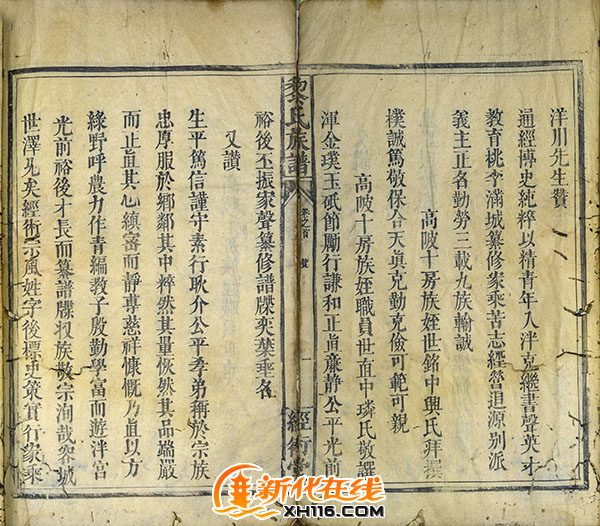 洋川先生贊
通經博史純粹以精青年入泮克繼書聲英才
教育桃李滿城纂修家乘苦志經營追源別派
義主正名勤勞三載九族輸誠
高陂十房族姪世銘中興氏拜撰
樸誠篤敬保合天真克勤克儉可範可親
高陂十房族姪職員世直中璘氏敬譔
渾金璞玉砥節勵行謙和正直廉静公平光前
黎氏族譜
卷之首
贊
一
經術堂
裕後丕振家聲纂修譜牒奕葉垂名
又讚
生平篤信謹守素行耿介公平孝弟稱於宗族
忠厚服於鄉鄰其中粹然其量恢然其品端嚴
而正直其心縝密而静專慈祥慷慨乃直以方
綠野呼農力作青編教子殷勤學富而遊泮宮
光前裕後才長而纂譜牒收族敬宗洵哉名城
世澤允矣經術宗風姓字後標史策實行家乘
新化在线
XH116.com